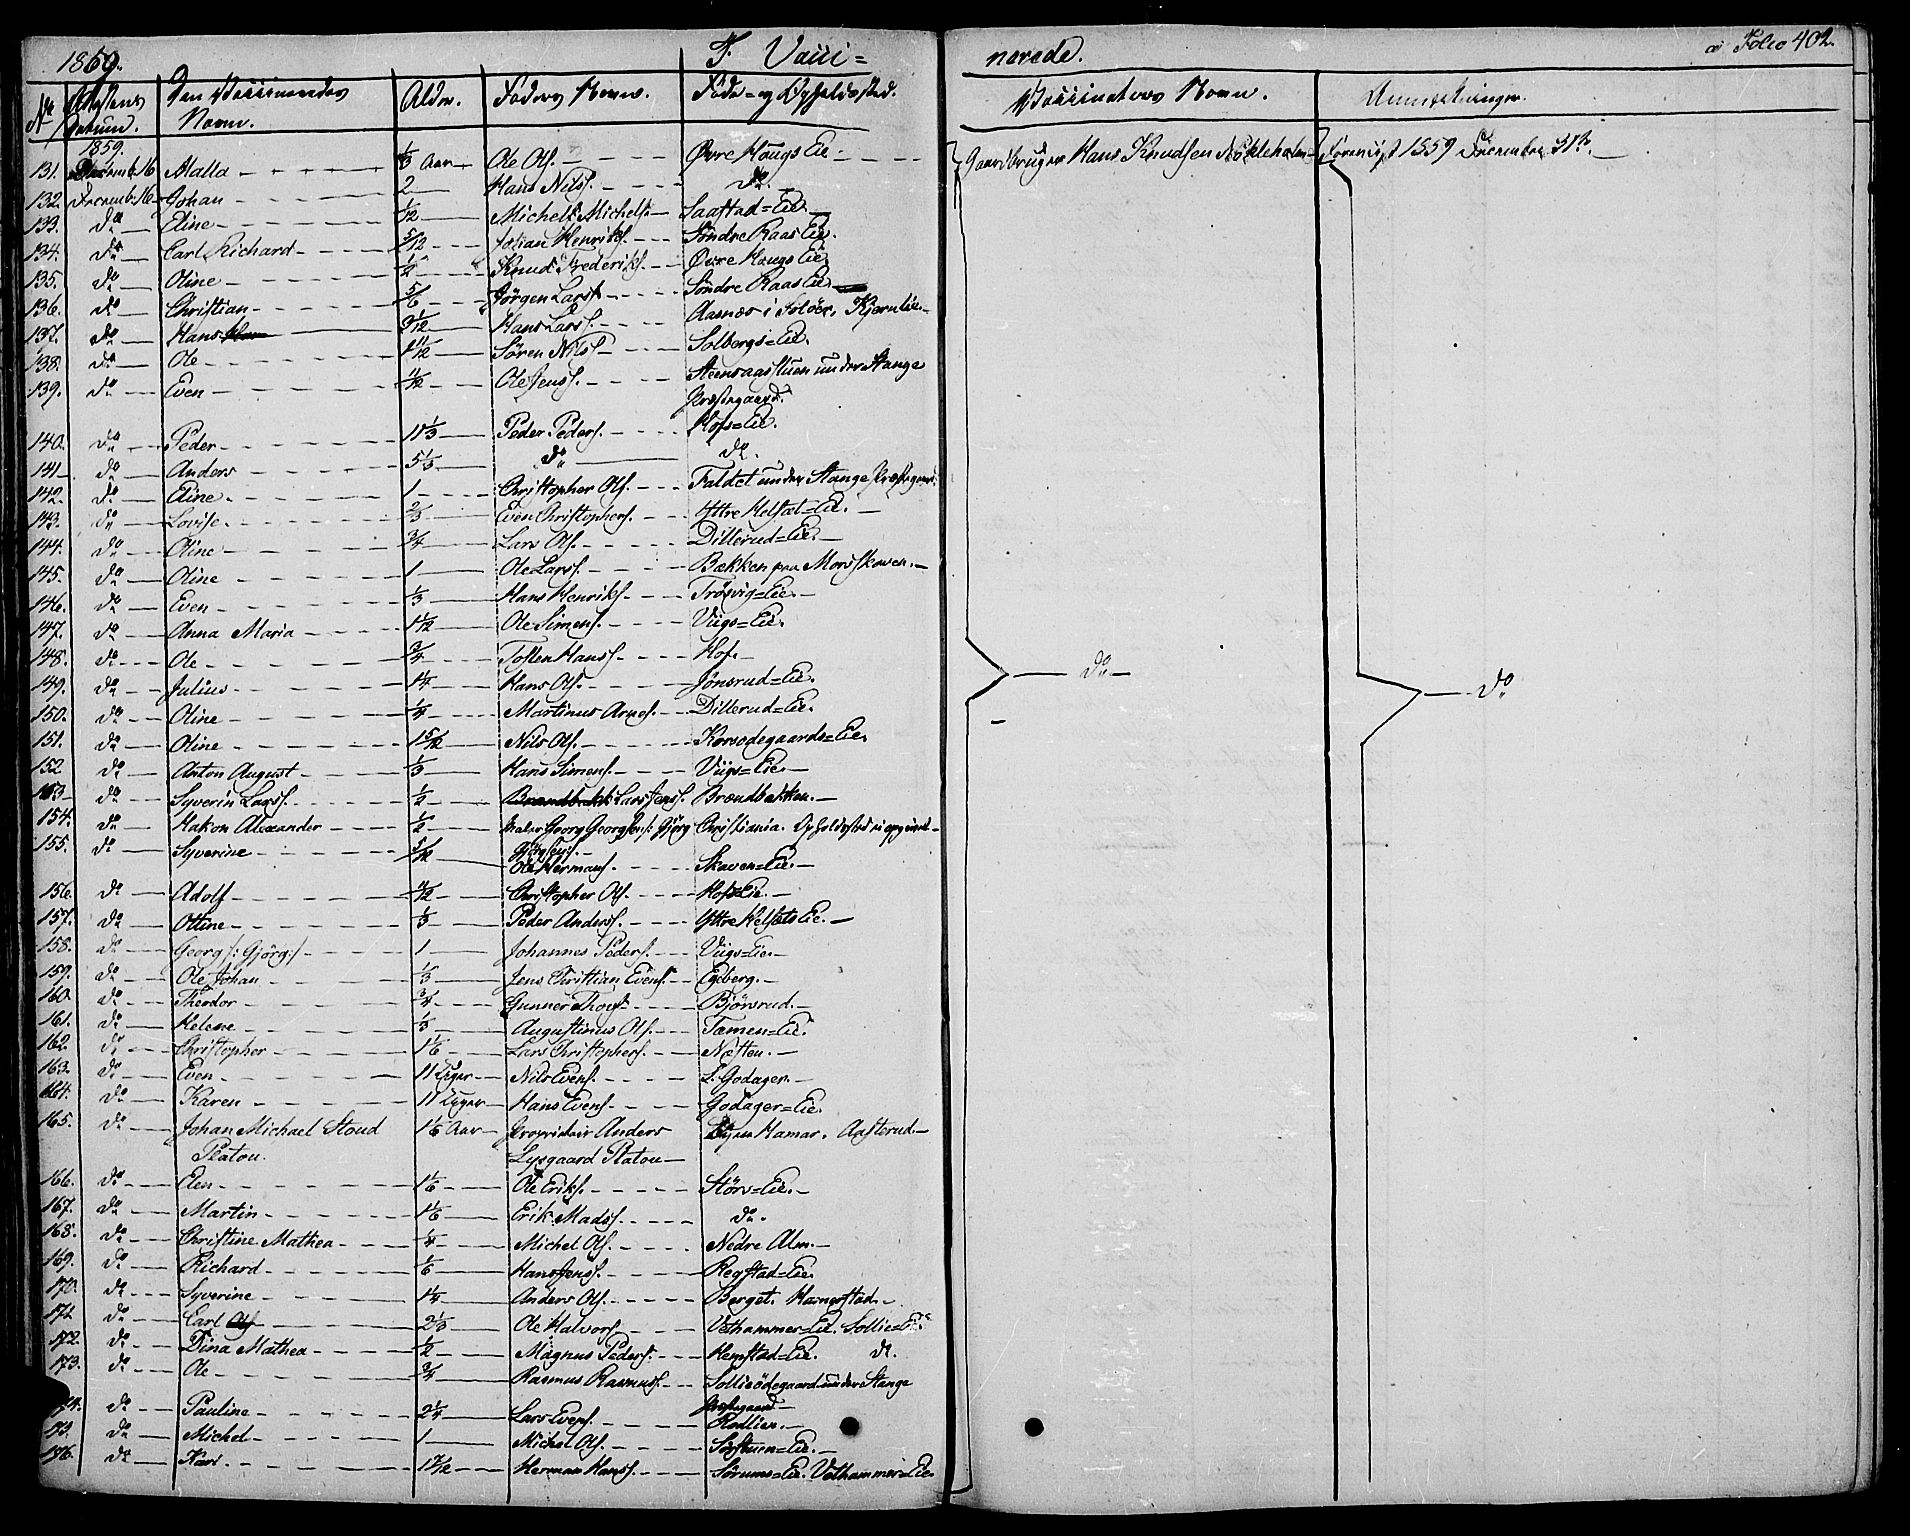 1859. F. Vacci= nerede. a Folio 402.
No Attestens Datum. Den Vaccineredes Navn. Alder. Faders Navn. Føde- og Opholdssted. Vaccinators Navn. Anmærkninger.
1859.
131. Decemb. 16 Malla 1/3 Aar Ole Ols. Øvre Hougs Eie Gaardbruger Hans Knudsen Nökleholm 1859 December 31te
132. Decemb. 16 Johan 2 Hans Nils. do
133. do Eline 1/12 Michel Michels. Saastad=Eie.
134. do Carl Richard 5/12 Johan Henriks. Söndre Raas Eie.
135. do Oline 1/2 Knud Frederiks. Øvre Hougs Eie
136. do Christian 5/6 Jörgen Lars. Söndre Raas Eie.
137. do Hans 3 1/12 Hans Lars. Aasnæs i Solöer.
138. do Ole Sören Nils Solbergs=Eie.
139. do Even 11/12 Ole Jens. under Stange
Præstegaard.
140. do Peder 11 1/3 Peder Peders. Hofs=Eie.
141 do Anders 5 1/3 do do
142. do Eline 1 Christopher Ols. Faldet under Stange Præstegaard.
143. do Lovise 2/3 Even Christophers. Yttre Helset=Eie.
144. do Oline 3/4 Lars Ols. Dillerud=Eie.
145. do Oline 1 Ole Lars. Bækken paa Morskoven.
146. do Even 1/3 Hans Henriks. Frösvig=Eie.
147. do Anna Maria 1 1/12 Ole Simens. Viigs=Eie.
148. do Ole 3/4 Tosten Hans. Hof. do do
149. do Julius 1 1/4 Hans Ols. Jönsrud=Eie.
150. do Oline 1/4 Martinus Arnes. Dillerud=Eie.
151. do Oline 1 5/12 Nils Ols. Korsødegaards=Eie.
152 do Anton August 1/3 Hans Simens. Viigs=Eie.
153 do Syverin Lars. 1/2 Lars Jens. Brændbækken.
154. do Hakon Alexander 1/2 Georg Georgsen /: Gjörg Christiania. Opholdssted ei opgivet
155. do Syverine 5/12 Gjörgsen :/
Ole Hermans. Skaven=Eie.
156. do Adolf Christopher Ols. Hofs=Eie.
157. do Ottine 1/3 Peder Anders. Yttre Helsets Eie.
158. do Georg /: Gjörg :/ 1 Johannes Peders. Viigs=Eie.
159. do Ole Johan 1/3 Jens Christian Evens. Egeberg.
160. do Theodor 3/4 Gunner Björnsrud.
161. do Helene 1/3 Augustinus Ols. Tæmen=Eie.
162. do Christopher 1 1/6 Lars Christophers. Næsten.
163. do Even 11 Uger Nils Evens. L. Godager.
164. do Karen 11 Uger Hans Evens. Godager=Eie.
165. do Johan Michael Stoud 1 1/6 Aar Proprietair Anders Byen Hamar. Aasterud.
Platou. Lysgaard Platou
166. do Elen 1 1/6 Ole Eriks. Störs=Eie.
167. do Martin 1 1/6 Erik Mads. do.
168. do Christine Mathea 1/4 Michel Ols. Nedre Alm.
169. do Richard 1/6 Hans Jens. Regstad=Eie.
170. do Syverine 1 1/4 Anders Ols. Berget. Hamerstad.
171 do Carl 2 1/3 Ole Halvors. Vethammer=Eie. Sollie=Eie
172. do Dina Mathea 1/2 Magnus Peders. Hemstad=Eie. do.
173. do Ole 3/4 Rasmus Rasmus. Sollieödegaard under Stange
Præstegaard
74. do Pauline 2 1/4 Lars Evens. Rodlien.
do Michel 1 Michel Ols. Sorstuen=Eie.
176. do Kari 1 7/12 Herman Hans. Sörums=Eie. Vethammer=Eie.